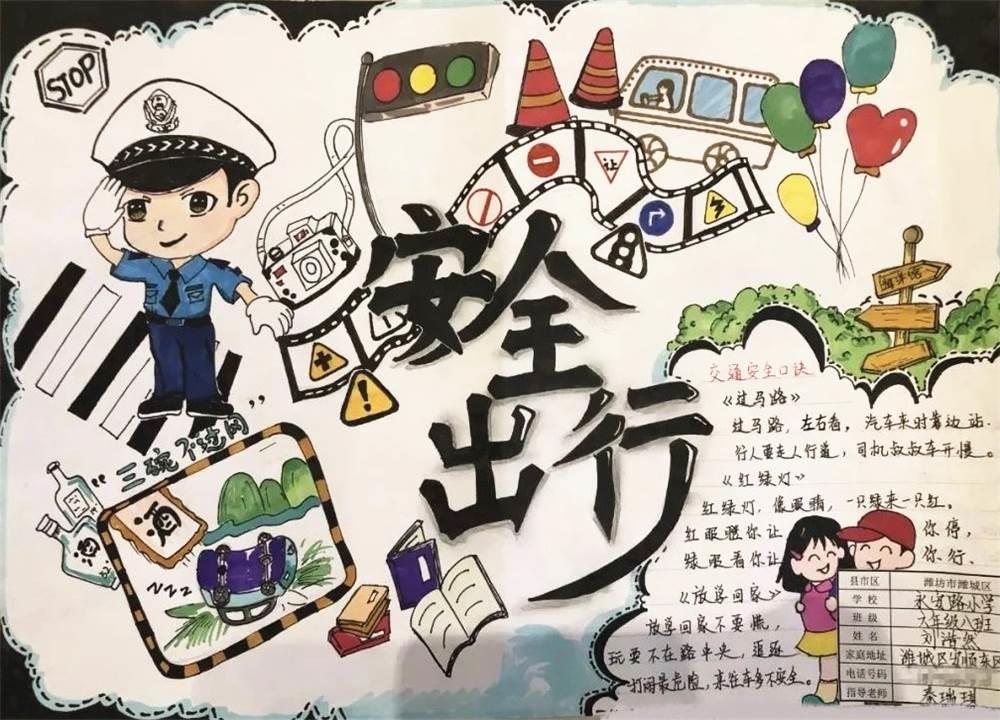 STOP
让
安全
出行
海洋馆
"三碗不过岗"
酒
酒
ZZZZ
交通安全口诀
《过马路》
过马路,左右看,汽车来时靠边站.
行人要走人行道,司机叔叔车开慢。
《红绿灯》
红绿灯,像眼睛,一只绿来一只红。
红眼瞪你让你停,
绿眼看你让你行.
《放学回家》
放学回家不要慌,
玩耍不在路中央,追逐
打闹最危险,来往车多不安全。
县市区 潍坊市潍城区
学校 永安路小学
班级 六年级八班
姓名 刘浩然
家庭地址 潍城区安顺东区
电话号码
指导老师 秦瑞琪